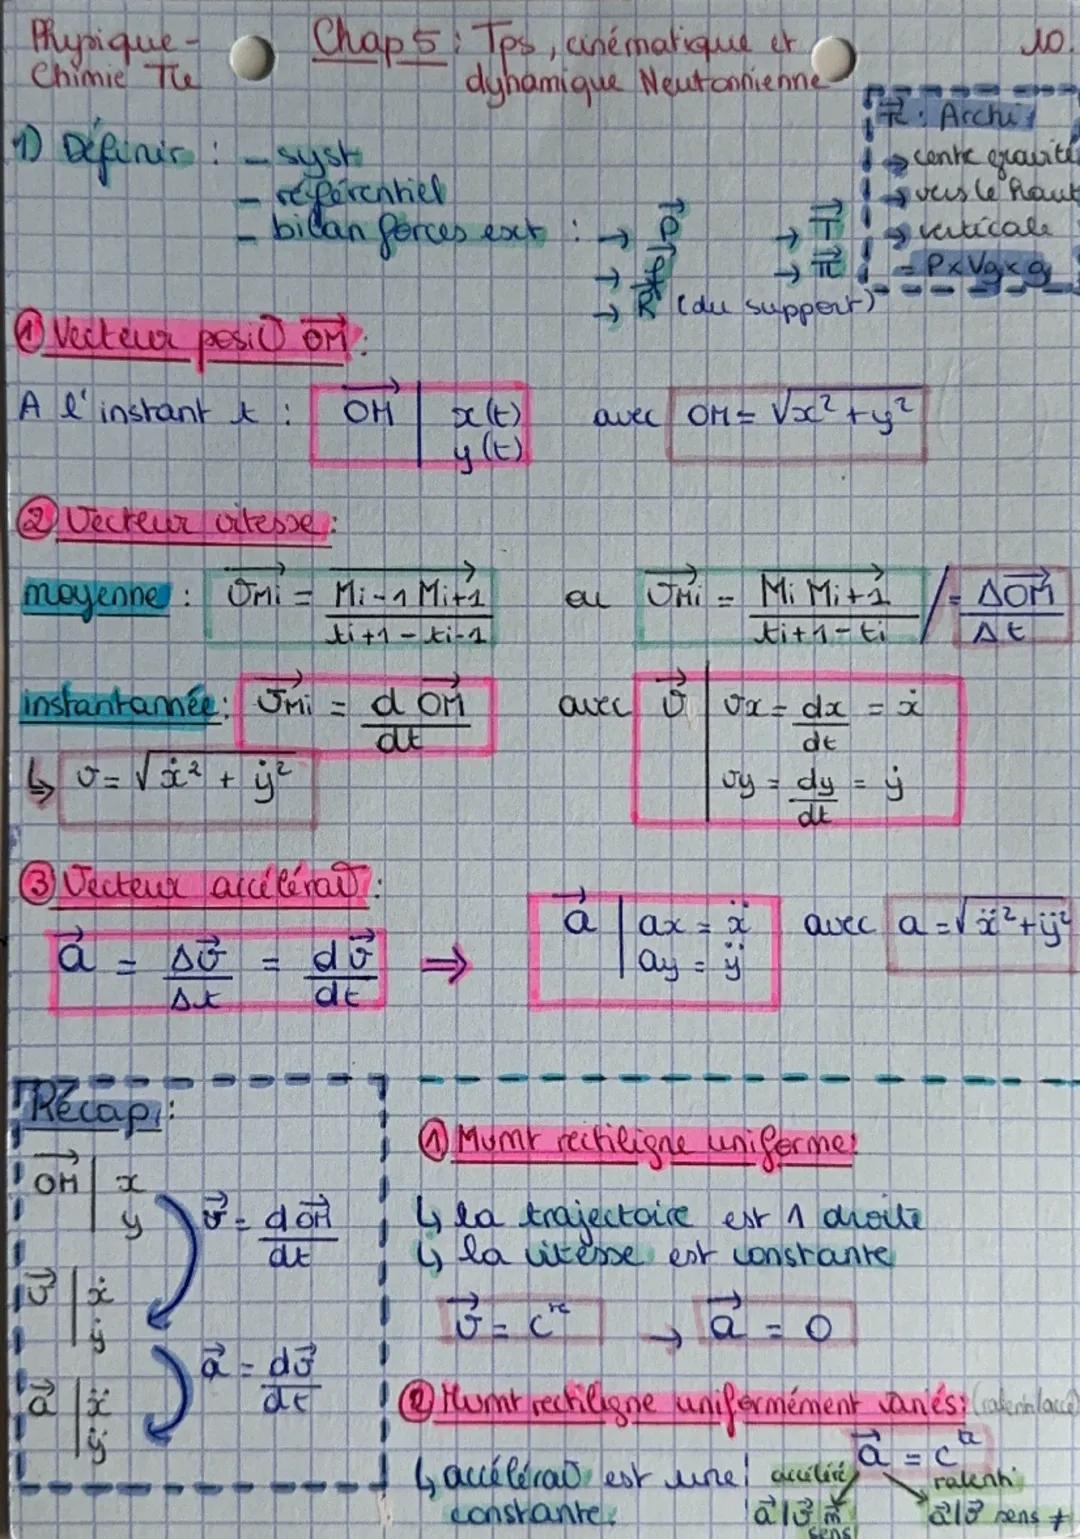 Physique-Chimie Tle
Chap 5 : Tps, cinématique et dynamique Neutonnienne
10.
π⃗ : Archi
→ centre gravité
→ vers le haut
→ verticale
= P x Vg x g
1) Définir : - syst
- référentiel
- bilan forces ext : → P⃗ → T⃗
→ f⃗ → π⃗
→ R⃗ (du support)
① Vecteur posit° OM⃗ :
A l'instant t : OM⃗ | x(t) avec OM = √x² + y²
y(t)
② Vecteur vitesse :
moyenne : v⃗Mi = Mi-1 Mi+1 / ti+1 - ti-1 ou v⃗Mi = Mi Mi+1 / ti+1 - ti / = ΔOM⃗ / Δt
instantannée : v⃗Mi = d OM⃗ / dt avec v⃗ | vx = dx/dt = ẋ
vy = dy/dt = ẏ
↳ v = √ẋ² + ẏ²
③ Vecteur accélérat° :
a⃗ = Δv⃗/Δt = dv⃗/dt ⇒ a⃗ | ax = ẍ avec a = √ẍ² + ÿ²
ay = ÿ
Récap :
OM⃗ | x
y
v⃗ = d OM⃗ / dt
v⃗ | ẋ
ẏ
a⃗ = dv⃗/dt
a⃗ | ẍ
ÿ
① Mvmt rectiligne uniforme :
↳ la trajectoire est 1 droite
↳ la vitesse est constante
v⃗ = cte → a⃗ = 0
② Mvmt rectiligne uniformément variés : (ralenti/accé)
↳ accélérat° est une constante.
a⃗ = cte
accéléré
a⃗ / v⃗ m̂ sens
ralenti
a⃗ / v⃗ sens ≠